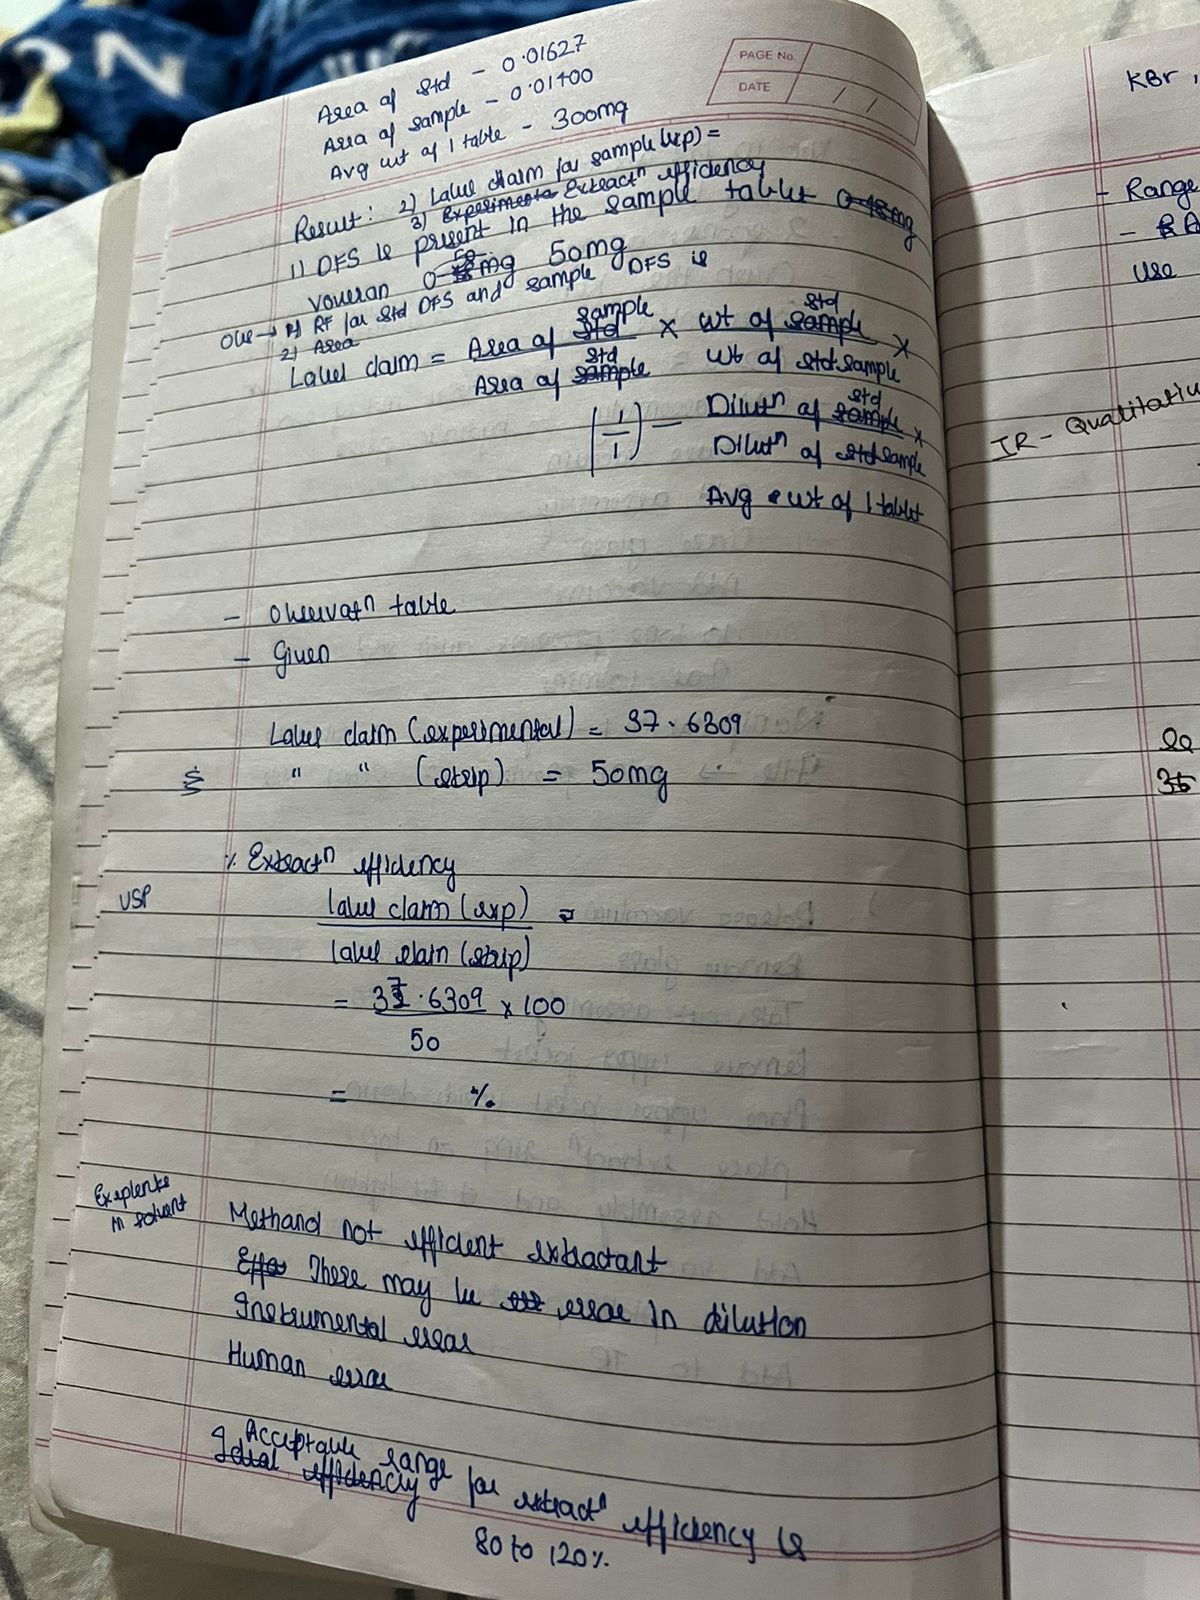 PAGE No.
DATE / /
Area of Std - 0.01627
Area of sample - 0.01400
Avg wt of 1 table - 300mg
Result: 2) Label claim for sample (exp) =
3) Experimenta Extractⁿ efficiency
1) DFS is present in the sample tablet 0.18mg
voveran 0 mg 50mg
Obs → 1) RF for Std DFS and sample DFS is
2) Area
Label claim = Area of std sample × wt of sample std ×
Area of sample std wt of std sample
(1/1) - Dilutⁿ of sample std ×
Dilutⁿ of std sample
Avg wt of 1 tablet
- Observatⁿ table
- Given
Label claim (experimental) = 37.6309
" " (strip) = 50mg
% Extractⁿ efficiency
USP
label claim (exp) =
label claim (strip)
= 37.6309 × 100
50
= %
Exiplents in solvent
Methanol not efficient extractant
Effo There may be error in dilution
Instrumental error
Human error
Acceptable range for extractⁿ efficiency is
Ideal efficiency
80 to 120%
KBr,
- Range
- RA
Use
IR - Qualitativ